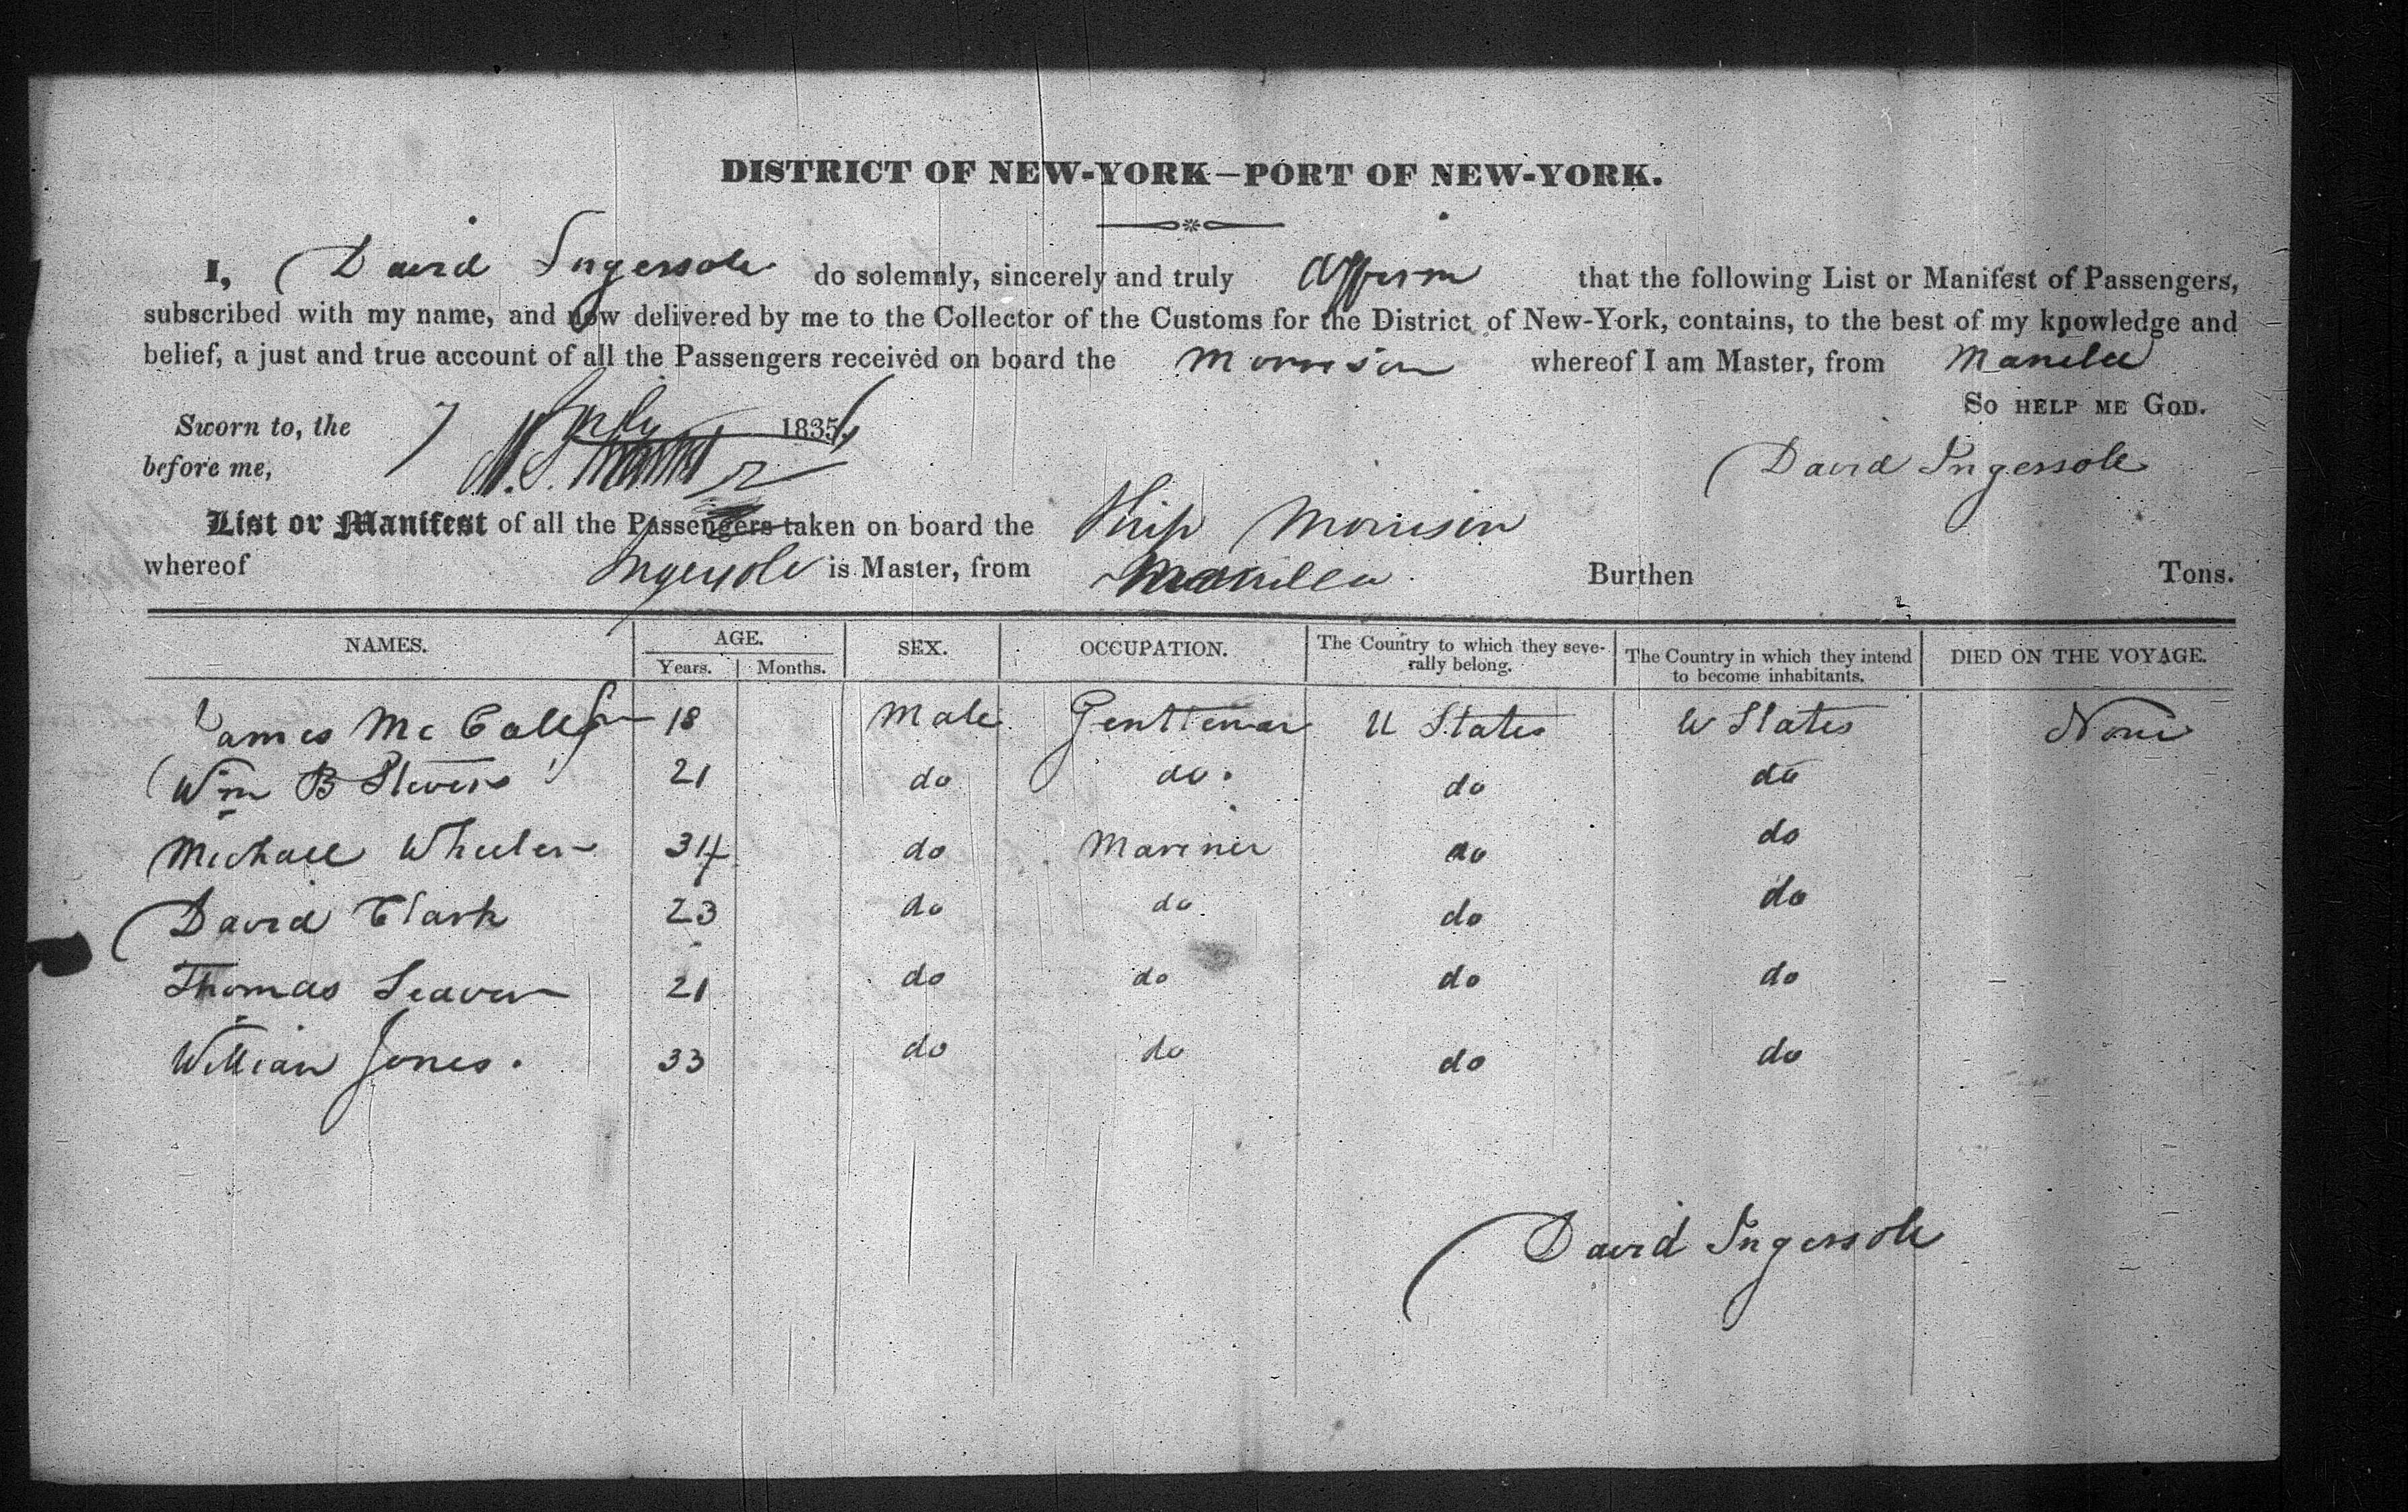 DISTRICT OF NEW-YORK—PORT OF NEW-YORK.
I, David Ingersole do solemnly, sincerely and truly affirm that the following List or Manifest of Passengers,
subscribed with my name, and now delivered by me to the Collector of the Customs for the District of New-York, contains, to the best of my knowledge and
belief, a just and true account of all the Passengers received on board the Morrison whereof I am Master, from Manila
So HELP ME GOD.
Sworn to, the 7 July 1835
before me,
David Ingersole
List or Manifest of all the Passengers taken on board the Ship Morrison
whereof Ingersole is Master, from Manilla Burthen Tons.
NAMES. AGE. SEX. OCCUPATION. The Country to which they seve-rally belong. The Country in which they intend to become inhabitants. DIED ON THE VOYAGE.
Years. Months.
James Mc Call 18 Male Gentleman U States U States None
Wm B Stevens 21 do do. do do
Michael Wheeler 34 do Mariner do do
David Clark 23 do do do do
Thomas Seaver 21 do do do do
William Jones. 33 do do do do
David Ingersole